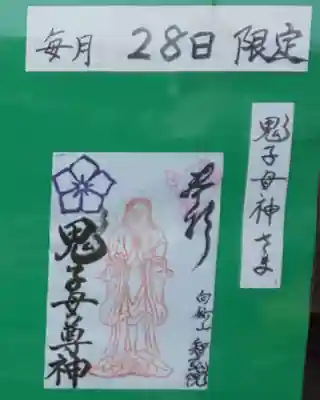 毎月 28日 限定
鬼子母神さま
奉拝
鬼子母尊神